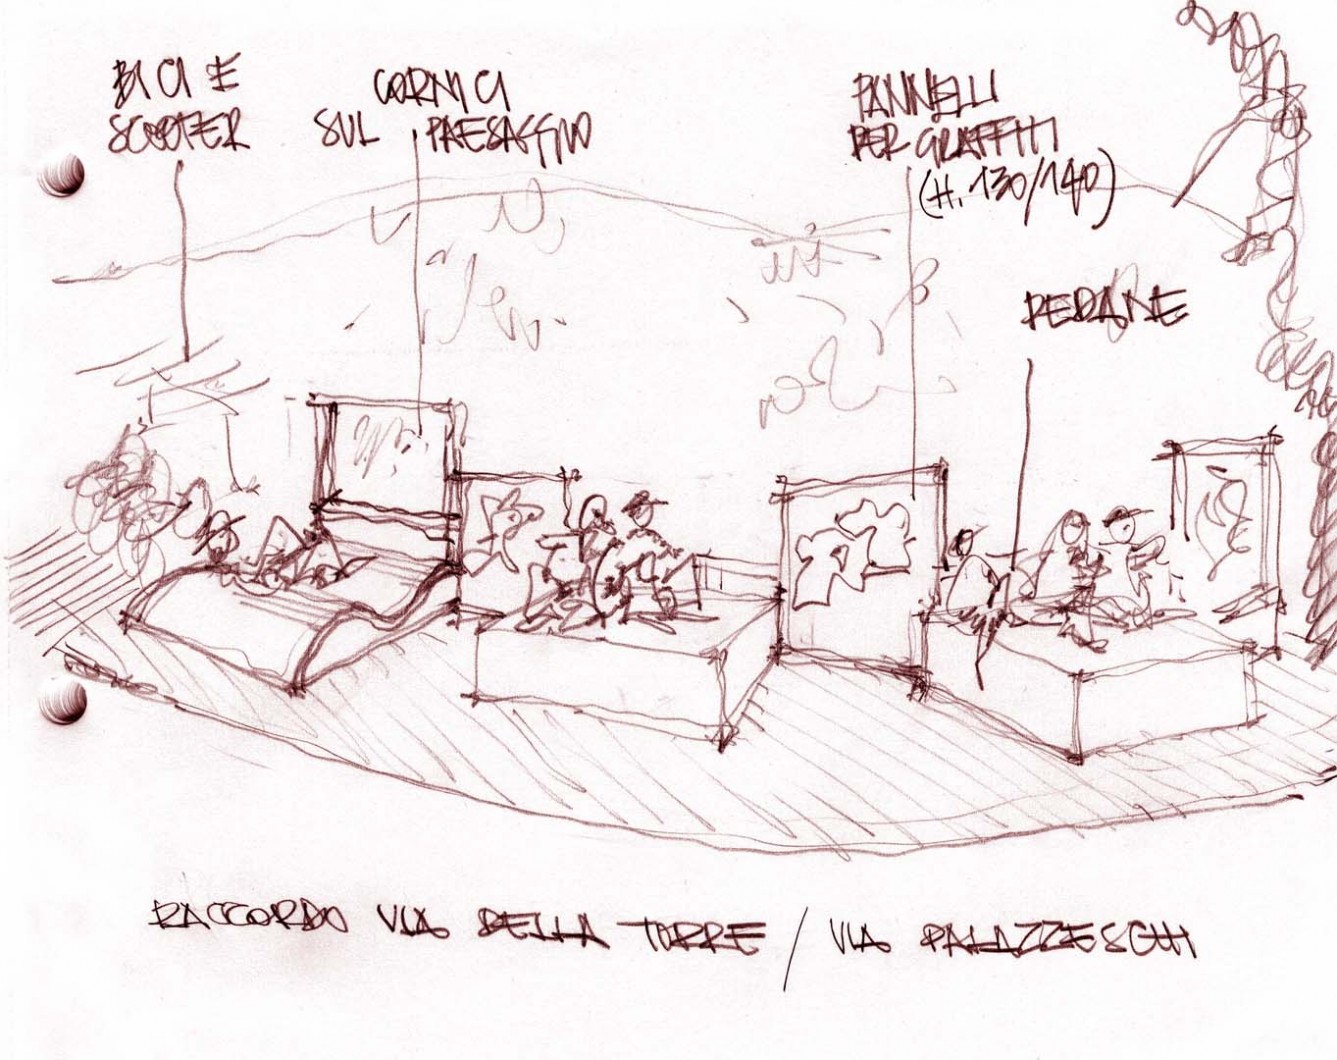 BICI E
SCOOTER
CORNICI
SUL PAESAGGIO
PANNELLI
PER GRAFFITI
(H. 130/140)
PEDANE
RACCORDO VIA DELLA TORRE / VIA PALAZZESCHI